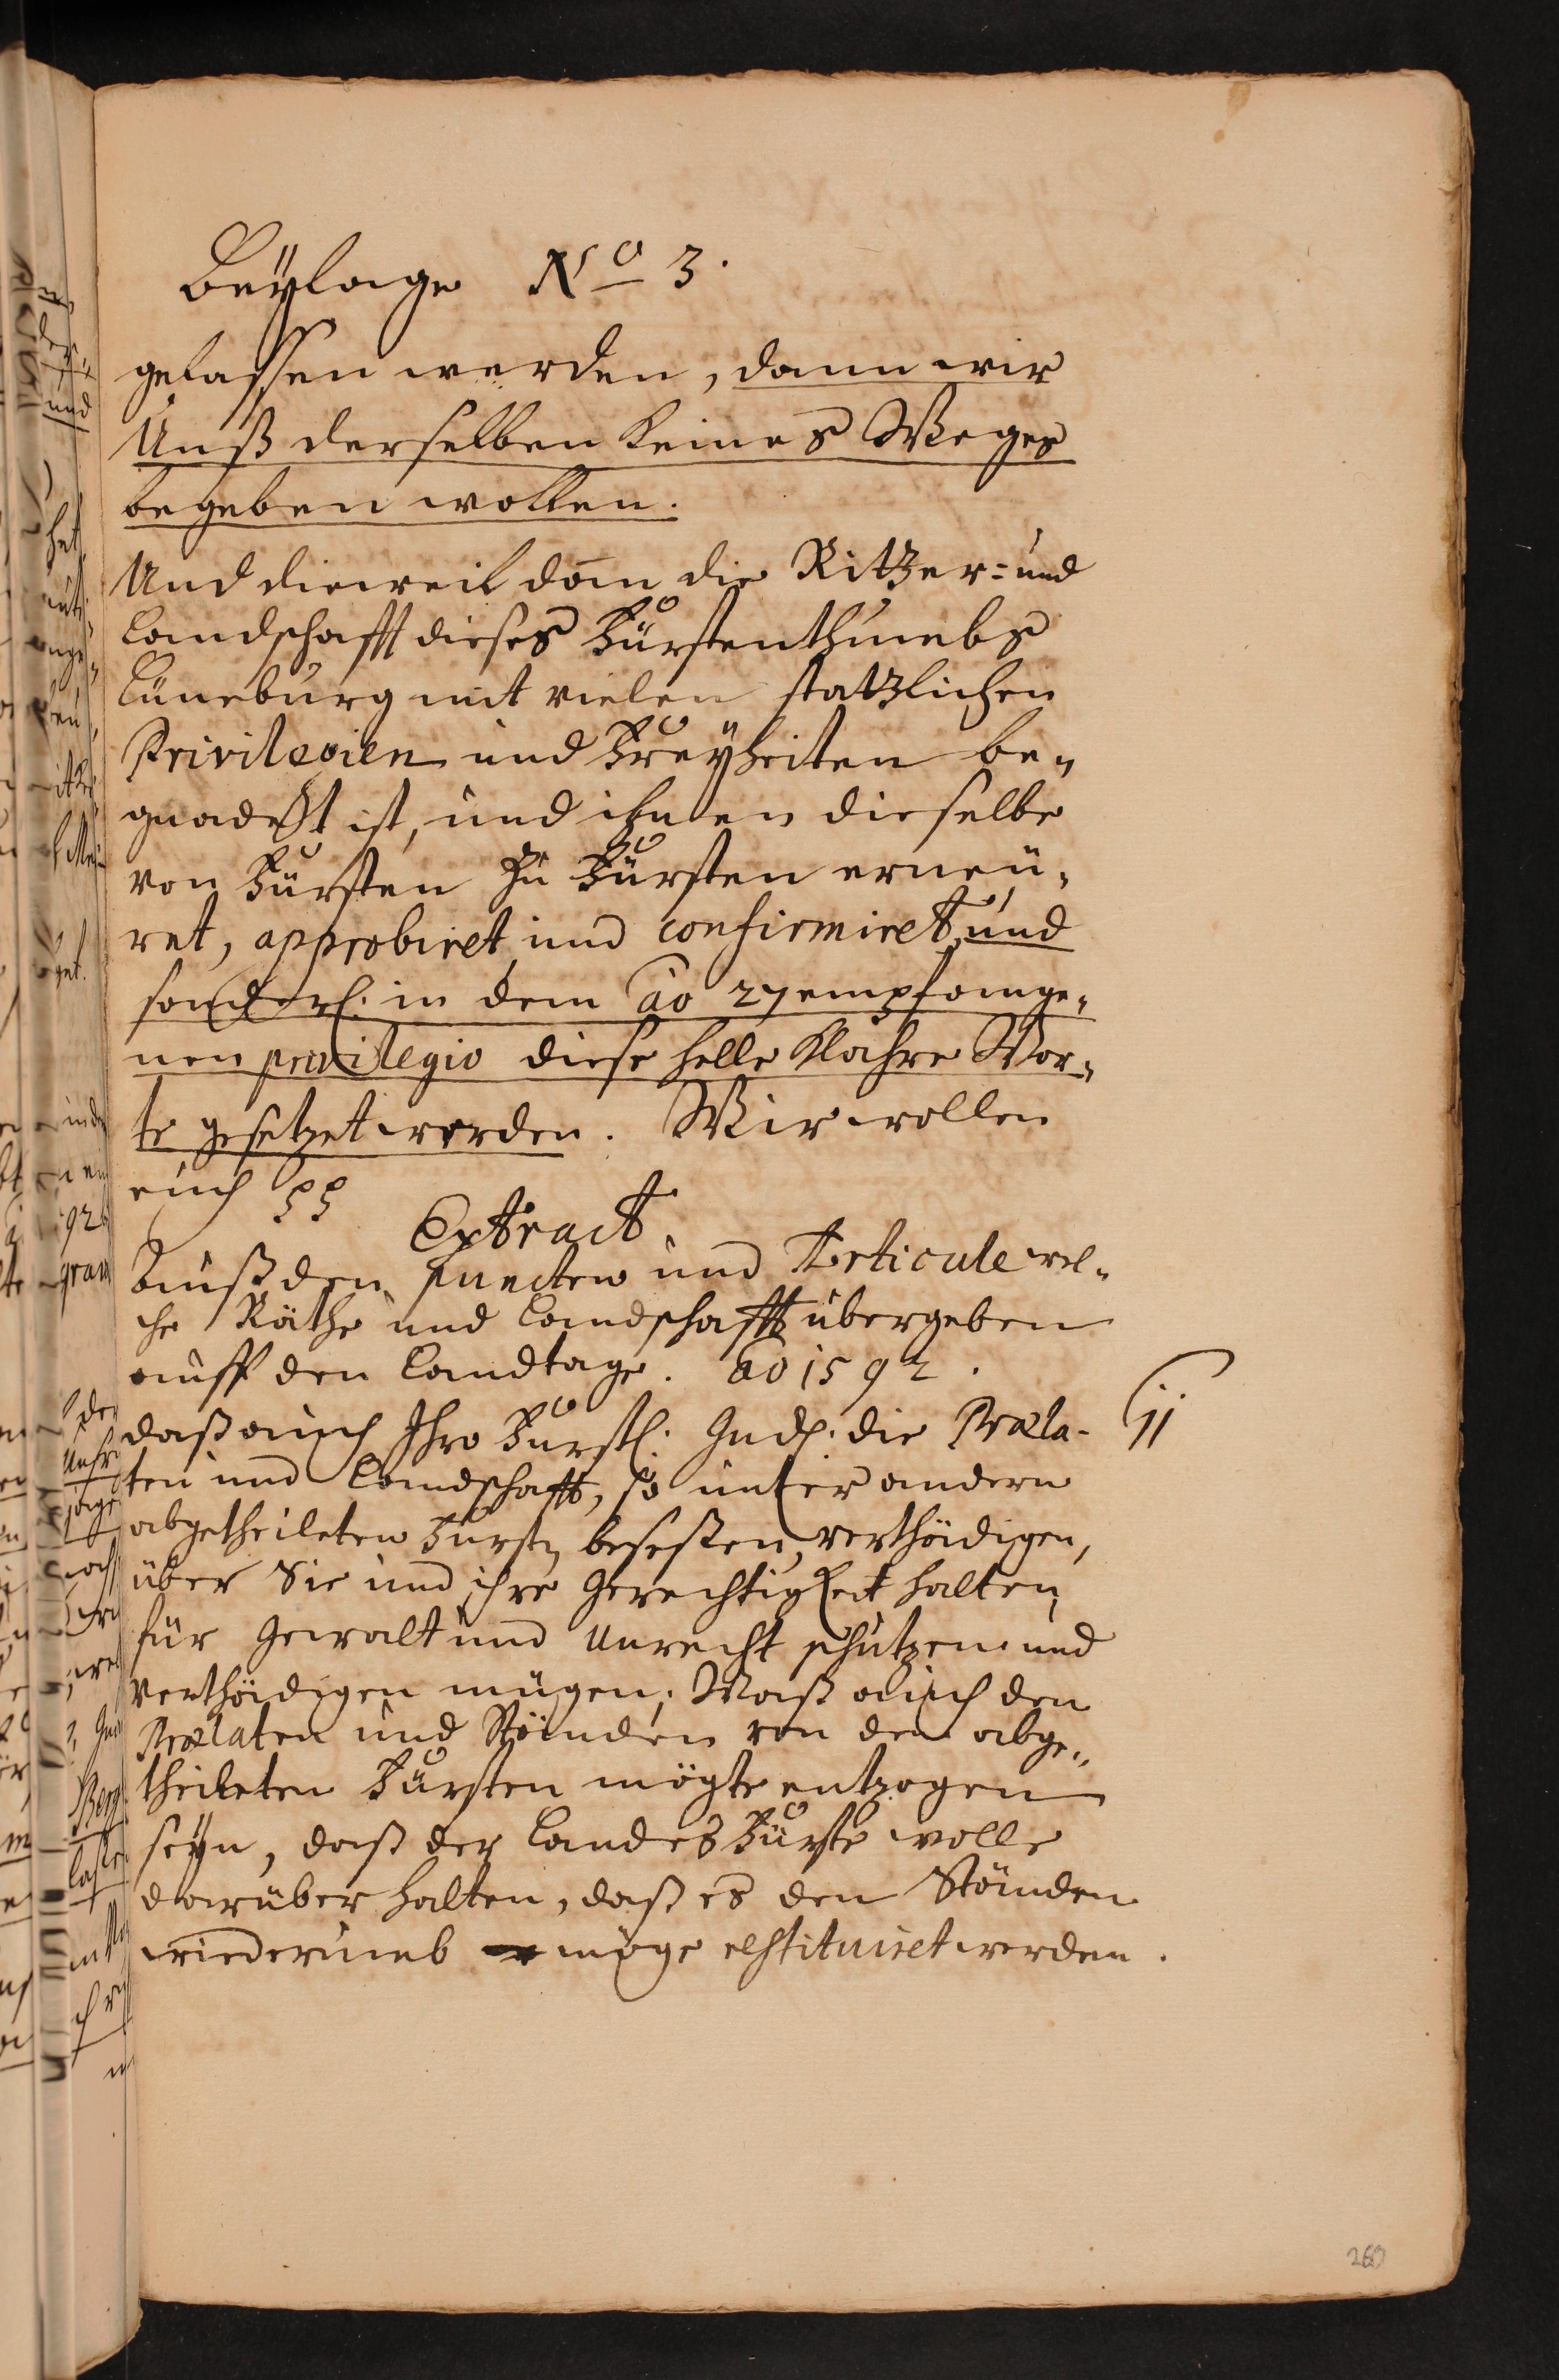 Beÿlage No 3.
gelassen werden, dann wir
Unß derselben keines Weges
begeben wollen.
Und dieweil dan̄ die Ritter= und
Landschafft dieses Fürstenthumbs
Lüneburg mit vielen statlichen
Privilegien und Freÿheiten be¬
gnadet ist, und ihnen dieselbe
von Fürsten zu Fürsten erneü¬
ret, approbiret und confirmiret, und
sonderl. in dem ao 27 empfange¬
nen privilegio diese helle klahre Wor¬
te gesetzet worden. Wir wollen
auch
Extract
Auß den Puncten und Articule wel¬
che Räthe und Landschafft übergeben
auff den Landtage. Ao 1592.
daß auch Ihro Fürstl. Gnd. die Præla-
ten und Landschafft, so unter andern
abgetheileten Fürstn besesten, verthädigen,
über Sie und ihre Gerechtigkeit halten,
für Gewalt und Unrecht schützen und
verthädigen mügen; Waß auch den
Prælaten und Ständen von den abge¬
theileten Fürsten mögte entzogen
seÿn, daß der Landes Fürste wolle
darüber halten, daß es den Ständen
wiederumb möge restituiret werden.
11
260